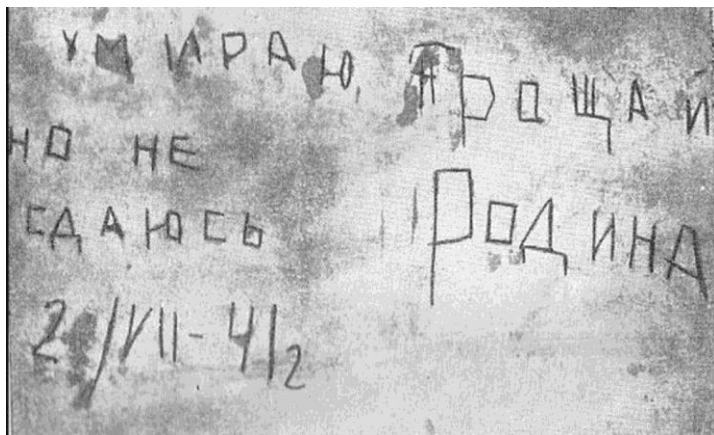 УМИРАЮ,
НО НЕ
СДАЮСЬ
ПРОЩАЙ
РОДИНА
20/VII-41